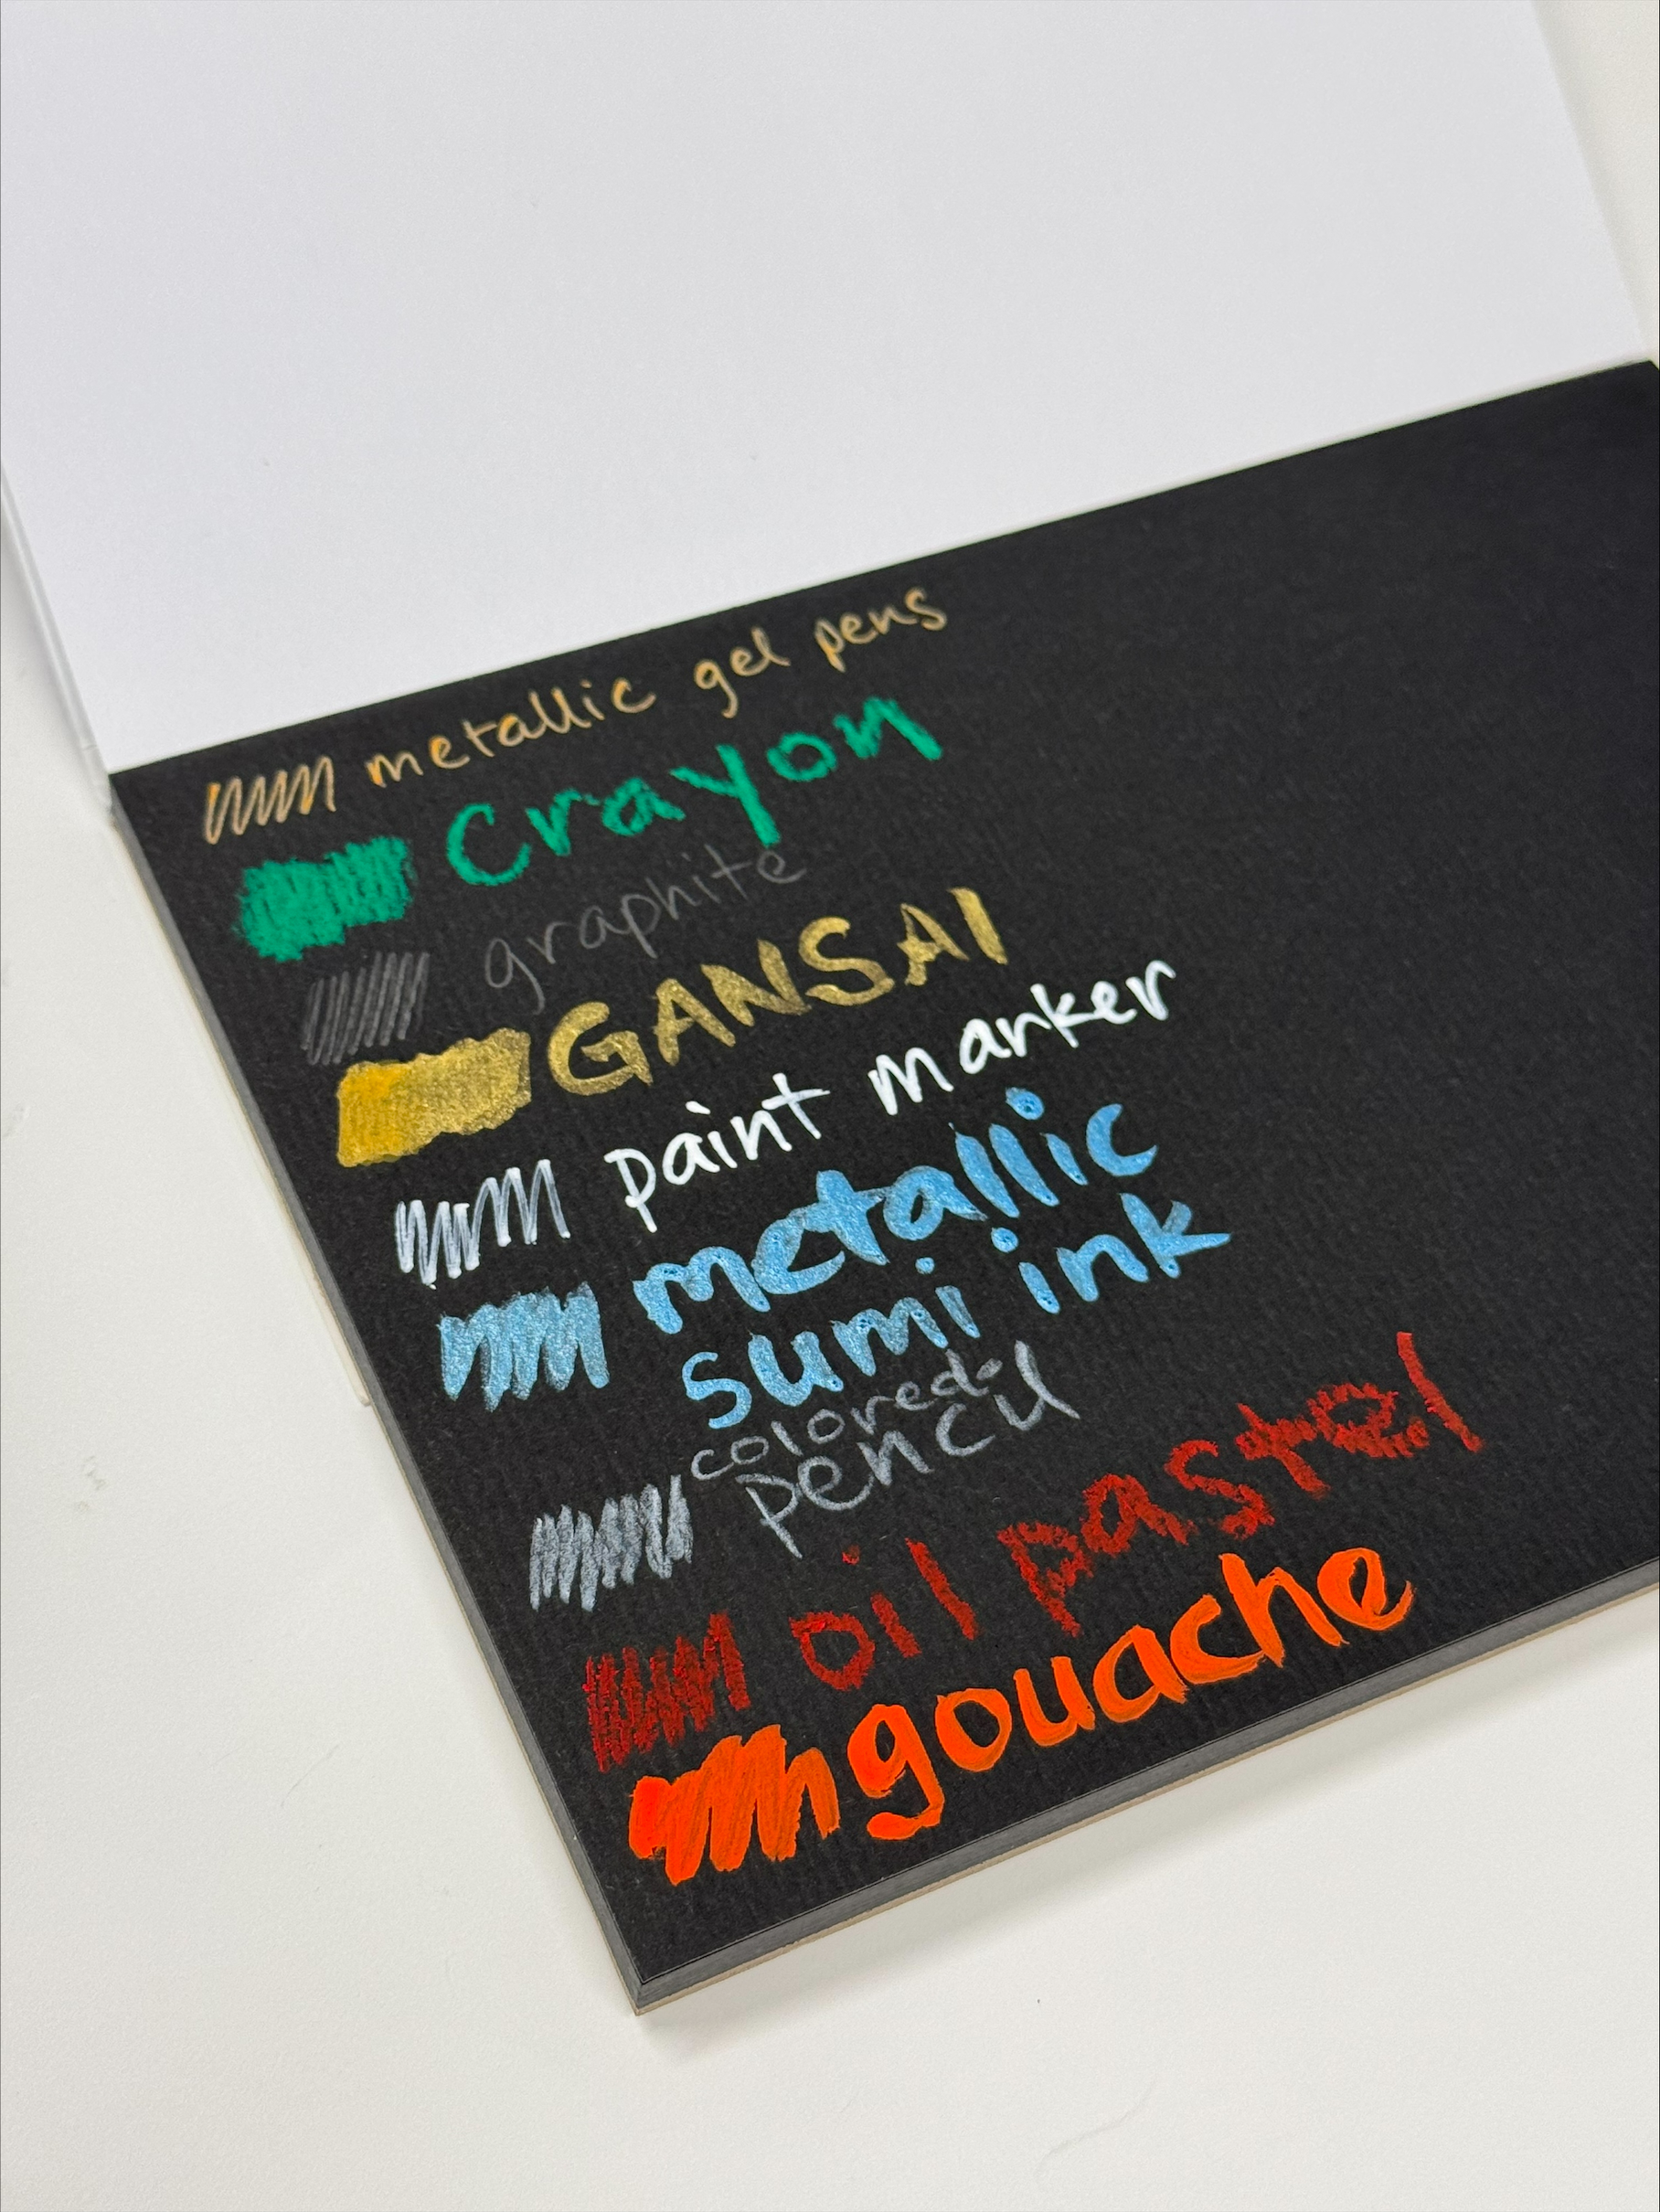 metallic gel pens
Crayon
graphite
GANSAI
paint marker
metallic
sumi ink
colored
pencil
oil pastel
gouache